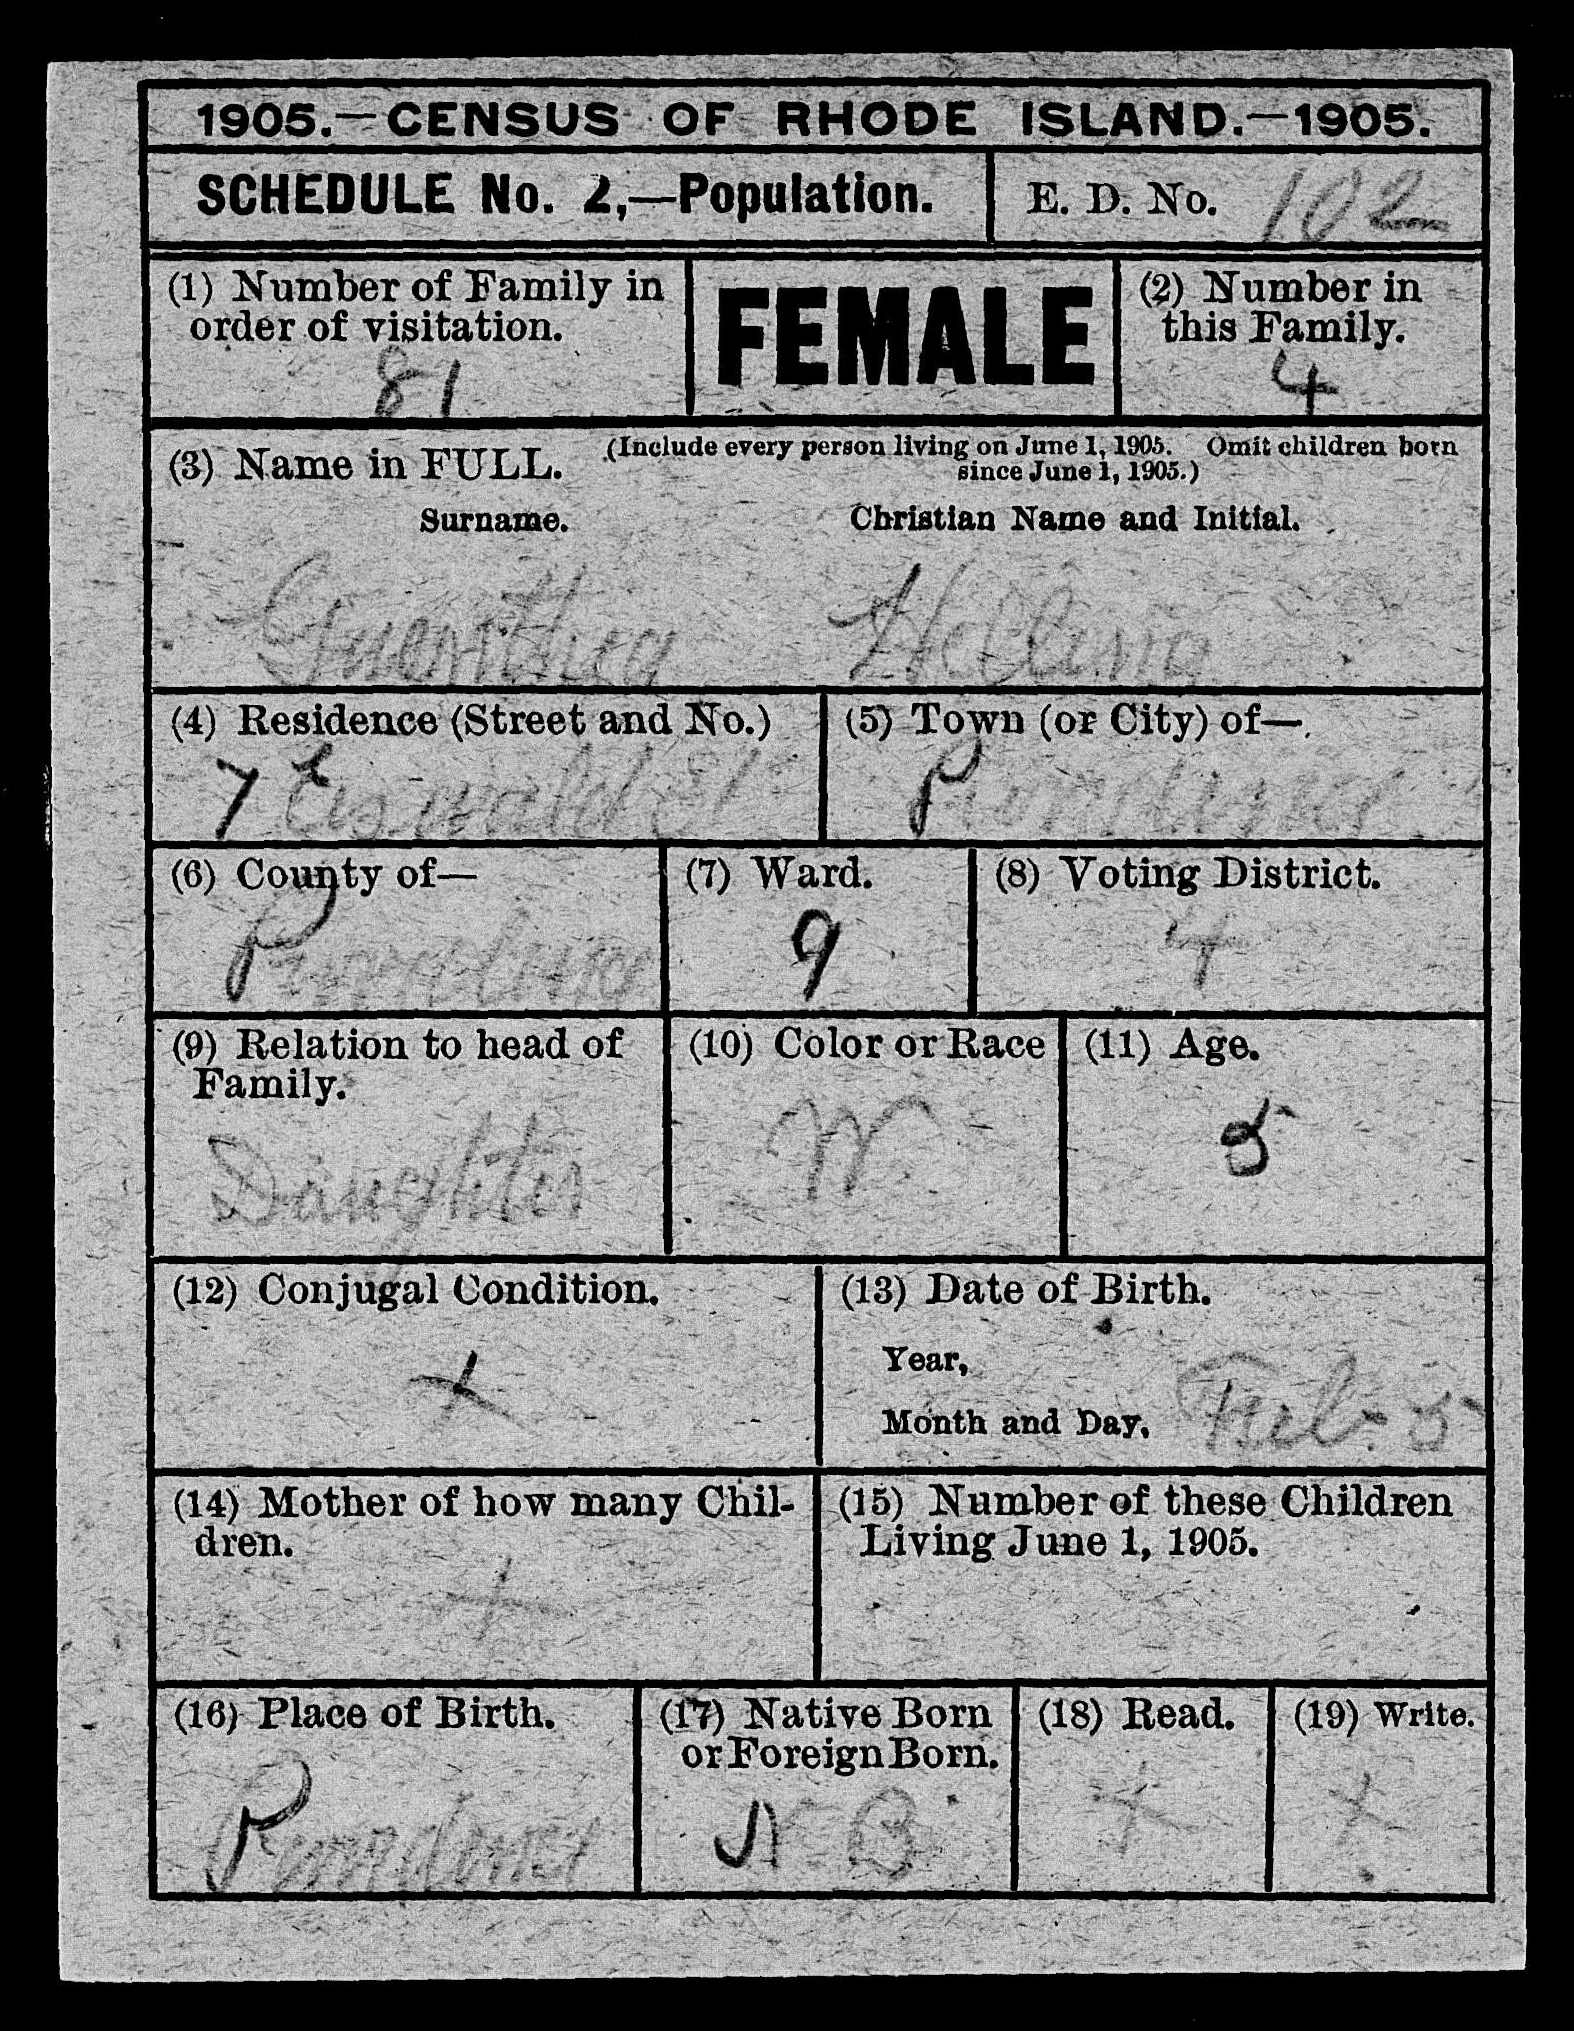 1905.—CENSUS OF RHODE ISLAND.—1905.
SCHEDULE No. 2,—Population.
E. D. No. 102
(1) Number of Family in
order of visitation.
81
FEMALE
(2) Number in
this Family.
4
(3) Name in FULL. (Include every person living on June 1, 1905. Omit children born
since June 1, 1905.)
Surname. Christian Name and Initial.
(4) Residence (Street and No.)
7 St
(5) Town (or City) of—
Providence
(6) County of—
Providence
(7) Ward.
9
(8) Voting District.
4
(9) Relation to head of
Family.
Daughter
(10) Color or Race
W
(11) Age.
5
(12) Conjugal Condition.
+
(13) Date of Birth.
Year,
Month and Day, Feb. 5
(14) Mother of how many Chil-
dren.
+
(15) Number of these Children
Living June 1, 1905.
(16) Place of Birth.
Providence
(17) Native Born
or Foreign Born.
N B
(18) Read.
+
(19) Write.
+